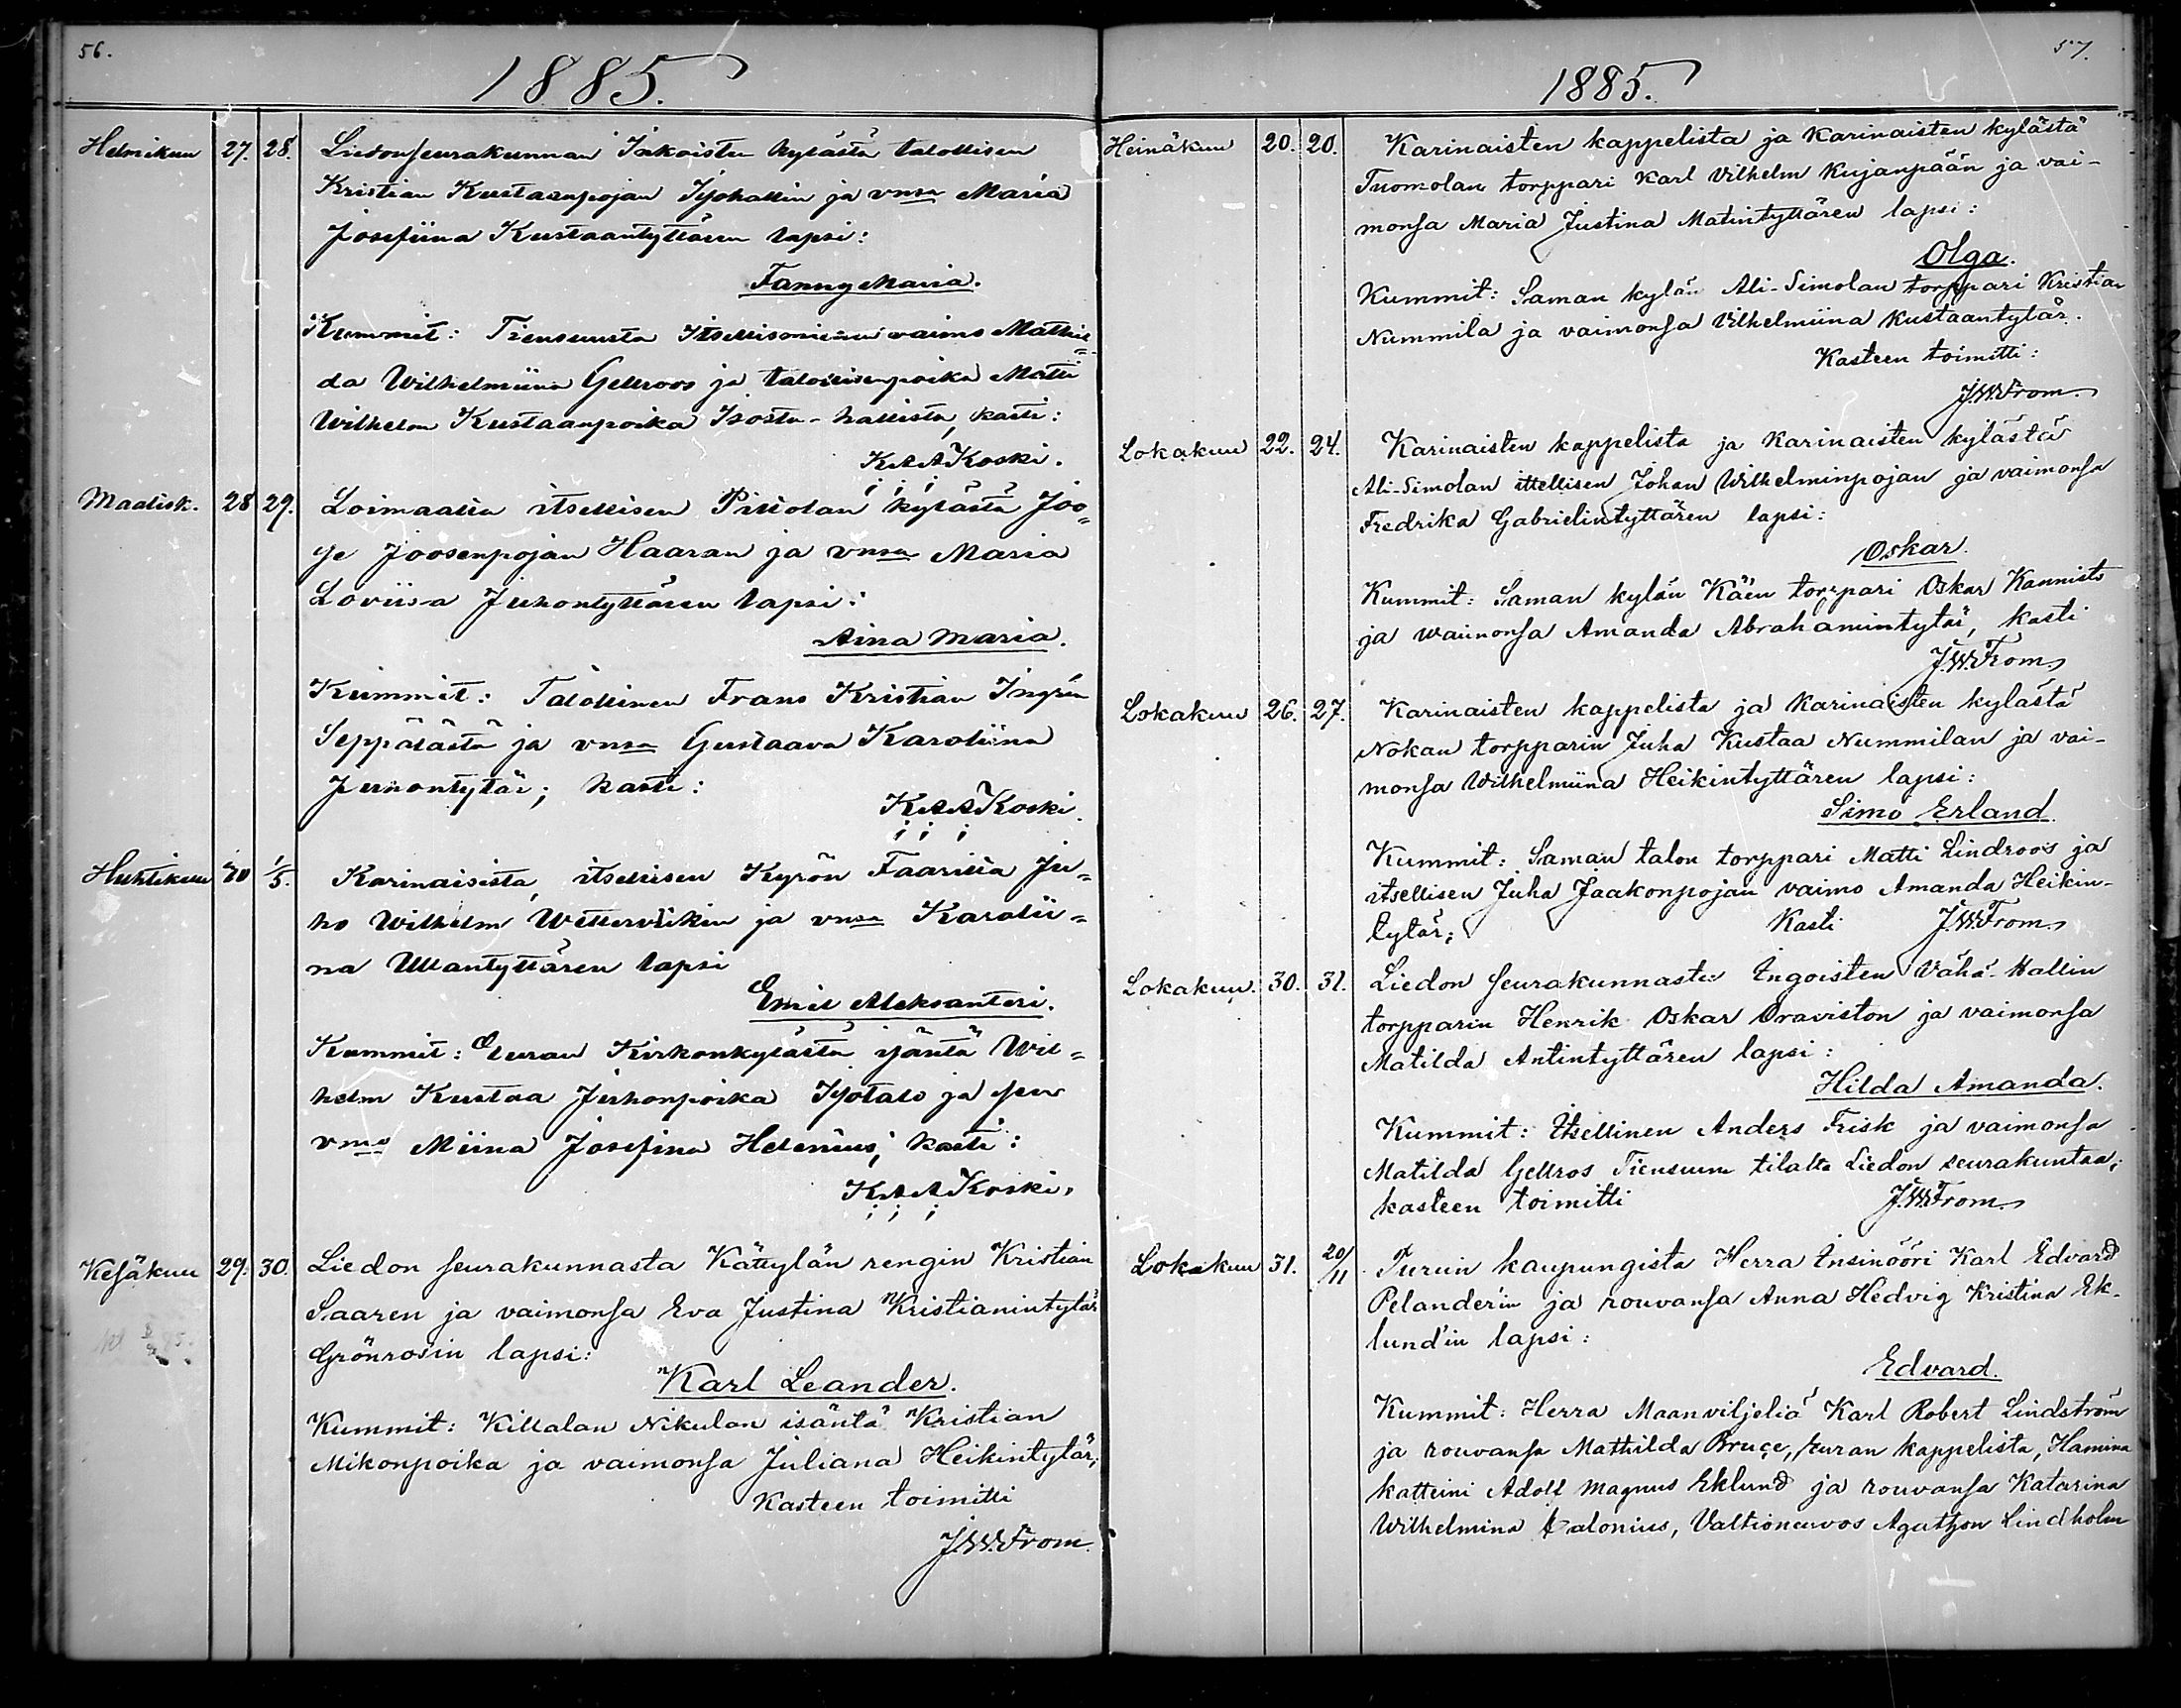 56.
1885.
Helmikuu 27. 28. Liedon seurakunnan kylästä talollisen
Kristian Kustaanpojan Isohallin ja vmsa Maria
Josefiina Kustaantyttären lapsi:
Fanny Maria.
Kummit: Tiensuusta vaimo Mathil=
da Wilhelmiina Gellroos ja talollisenpoika Matti
Wilhelm Kustaanpoika hallista, kasti:
K.A.A.Koski.
Maalisk. 28 29. Loimaalla itsellisen kylästä Joo=
se Joosenpojan Haaran ja vmsa Maria
Loviisa Juhontyttären lapsi:
Aina Maria.
Kummit: Talollinen Frans Kristian
Seppälästä ja vmsa Gustaava Karoliina
Juhontytär; kasti:
K.A.A.Koski.
Huhtikuu 1/5. Karinaisista, itsellisen Kyrön Juho=
ho Wilhelm ja vmsa Karolii=
na Ullantyttären lapsi
Emil Aleksanteri.
Kummit: Euran Kirkonkylästä isäntä Wil=
helm Kustaa Juhonpoika Isotalo ja sen
vmo Miina Josefina Helenius; kasti:
K.A.A.Koski.
Kesäkuu 29. 30. Liedon seurakunnasta Kättylän rengin Kristian
Saaren ja vaimonsa Eva Justina Kristianintytär
Grönrosin lapsi:
Karl Leander.
Kummit: Killalan Nikulan isäntä Kristian
Mikonpoika ja vaimonsa Juliana Heikintytär;
Kasteen toimitti
J.W.From.
57.
1885.
Heinäkuu 20. 20. Karinaisten kappelista ja Karinaisten kylästä
Tuomolan torppari Karl Vilhelm Kujanpään ja vai-
monsa Maria Justina Matintyttären lapsi:
Olga.
Kummit: Saman kylän Ali-Simolan torppari Kristian
Nummila ja vaimonsa Vilhelmiina Kustaantytär.
Kasteen toimitti:
J.W.From.
Lokakuu 22. 24. Karinaisten kappelista ja Karinaisten kylästä
Ali-Simolan ittellisen Johan Wilhelminpojan ja vaimonsa
Fredrika Gabrielintyttären lapsi:
Oskar.
Kummit: Saman kylän Käen torppari Oskar Kannisto
ja waimonsa Amanda Abrahamintytär, kasti
J.W.From.
Lokakuu 26. 27. Karinaisten kappelista ja Karinaisten kylästä
Nokan torpparin Juha Kustaa Nummilan ja vai-
monsa Wilhelmiina Heikintyttären lapsi:
Simo Erland.
Kummit: Saman talon torppari Matti Lindroos ja
itsellisen Juha Jaakonpojan vaimo Amanda Heikin-
tytär; Kasti J.W.From.
Lokakuu. 30. 31. Liedon seurakunnasta Ingoisten Vähä-Hallin
torpparin Henrik Oskar Oraviston ja vaimonsa
Matilda Antintyttären lapsi:
Hilda Amanda.
Kummit: Itsellinen Anders Frisk ja vaimonsa
Matilda Gellros Tiensuun tilalta Liedon seurakuntaa,
kasteen toimitti J.W.From.
Lokakuu 31. 20/11 Turun kaupungista Herra Insinööri Karl Edvard
Pelander'in ja rouvansa Anna Hedvig Kristina Ek-
lund'in lapsi:
Edvard.
Kummit: Herra Maanviljeliä Karl Robert Lindström
ja rouvansa Mathilda Bruce, Euran kappelista,
katteini Adolf Magnus Eklund ja rouvansa Katarina
Wilhelmina Calonius, Valtioneuvos Agathon Lindholm